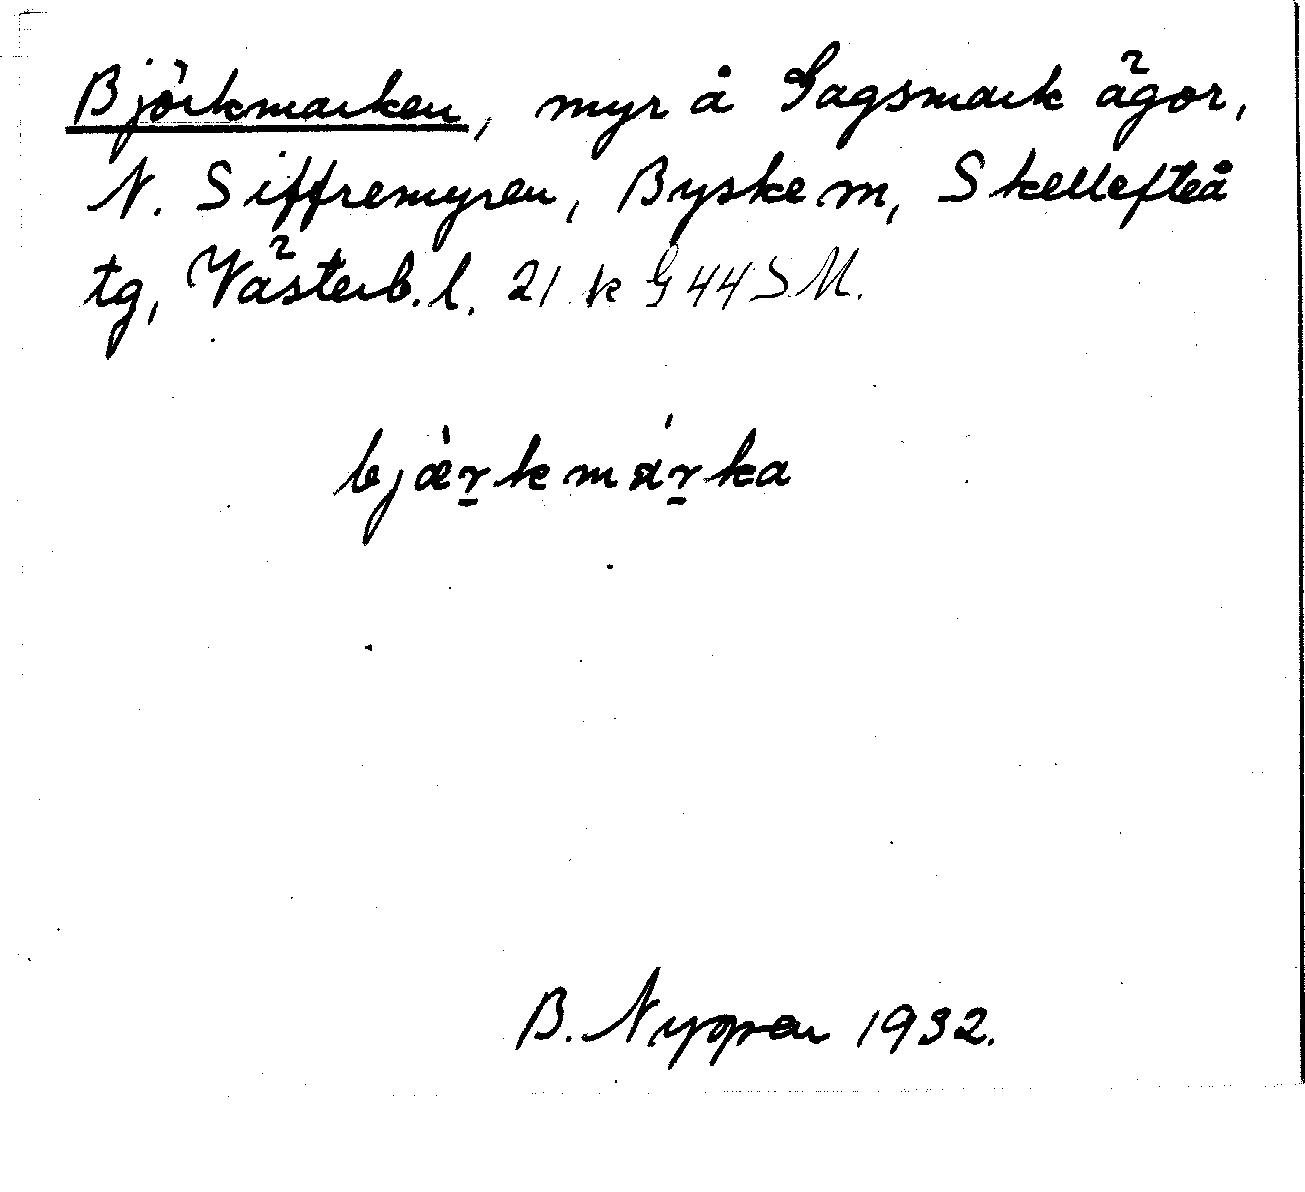 Björkmarken, myr å Gagsmark ägor,
N. Siffremyren, Byske m, Skellefteå
tg, Västerb. l. 21 k G 44 SM.
bjæ̀r̠kmár̠ka
B. Nygren 1932.